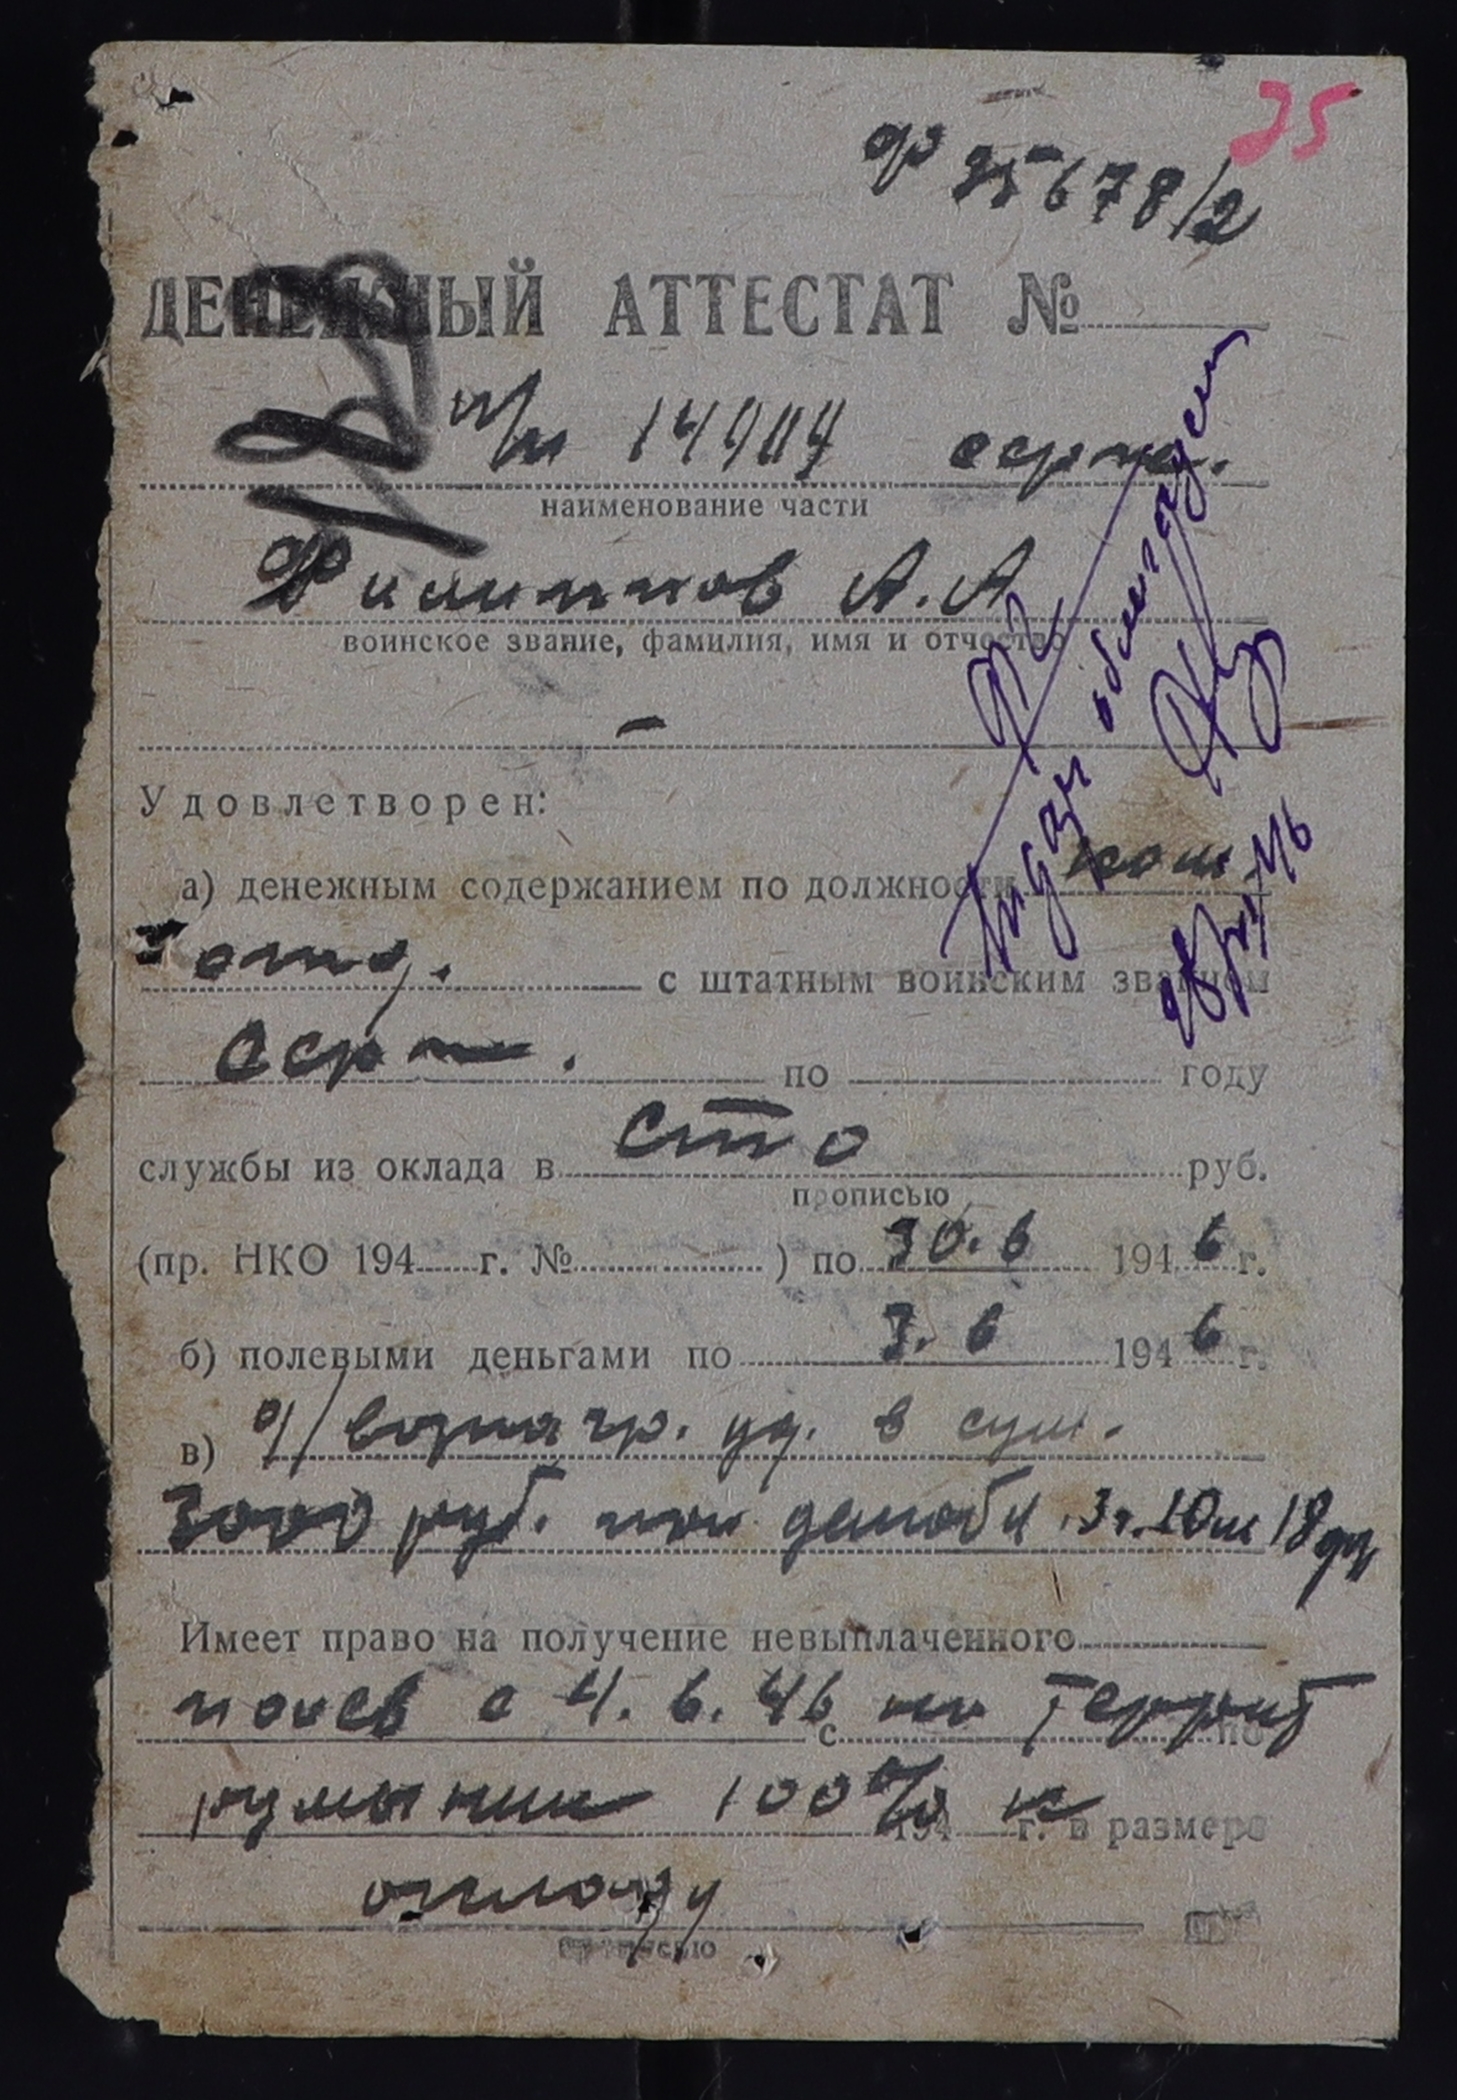 25
ф 35678/2
ДЕНЕЖНЫЙ АТТЕСТАТ №
п/п 14904 серж.
наименование части
Филиппов А.А
воинское звание, фамилия, имя и отчество
—
Удовлетворен:
а) денежным содержанием по должности ком.
с штатным воинским званием
серж. по году
службы из оклада в сто руб.
прописью
(пр. НКО 194 г. № ) по 30.6 1946 г.
б) полевыми деньгами по 3.6 1946 г.
в) д/вознагр. уд. в сум.
3000 руб. при демоби. 3г. 10м 18дн
Имеет право на получение невыплаченного
полев с 4.6.46 с по террит по
румынии 100% к 194 г. в размере
окладу
прописью